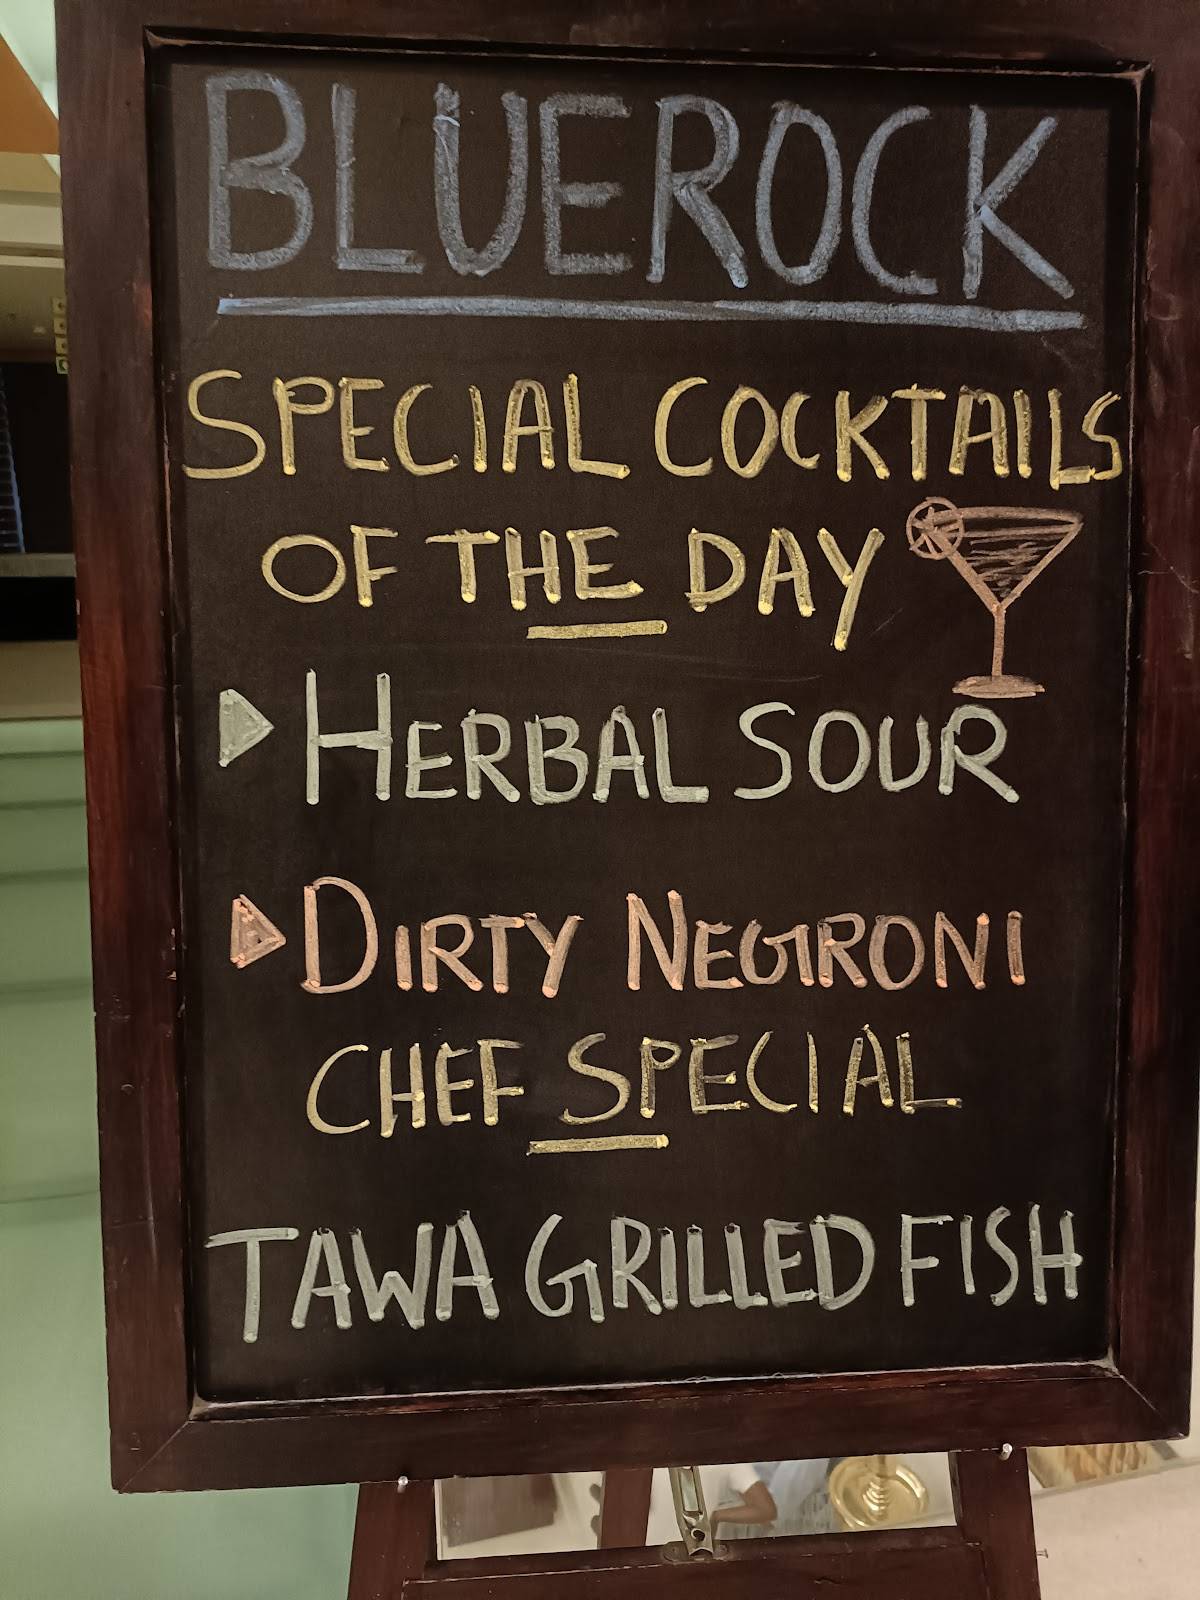 BLUEROCK
SPECIAL COCKTAILS
OF THE DAY
HERBAL SOUR
DIRTY NEGRONI
CHEF SPECIAL
TAWA GRILLED FISH